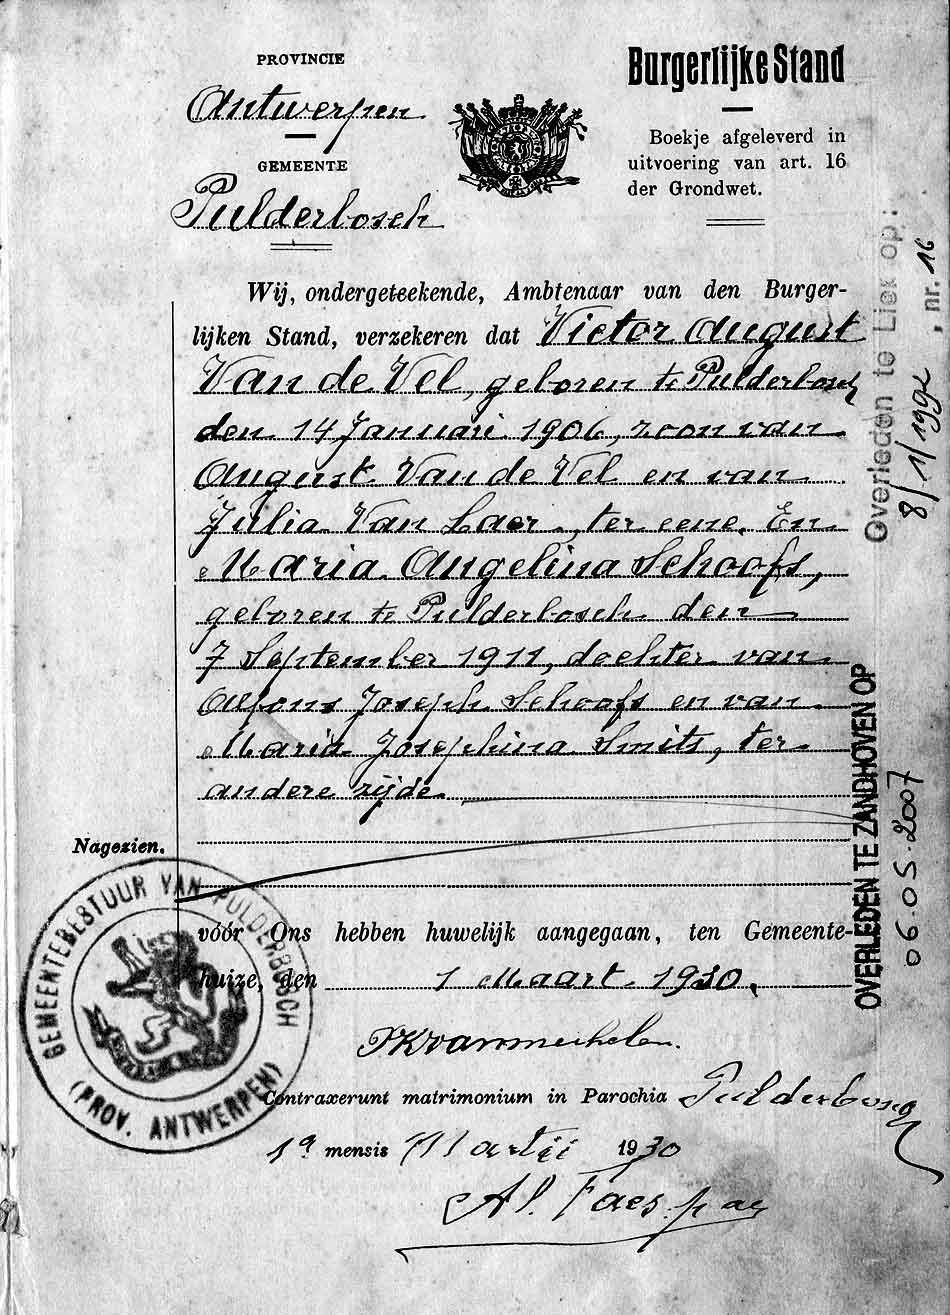 PROVINCIE
Antwerpen
GEMEENTE
Pulderbosch
Burgerlijke Stand
Boekje afgeleverd in
uitvoering van art. 16
der Grondwet.
Wij, ondergeteekende, Ambtenaar van den Burger-
lijken Stand, verzekeren dat Victor August
Van de Vel, geboren te Pulderbosch
den 14 Januari 1906, zoon van
August Van de Vel en van
Julia Van Laer, ter eene. En
Maria Angelina Schoofs,
geboren te Pulderbosch den
7 September 1911, dochter van
Alfons Joseph Schoofs en van
Maria Josephina Smits, ter
andere zijde.
Nagezien.
vóór Ons hebben huwelijk aangegaan, ten Gemeente-
huize, den 1 Maart 1930.
Contraxerunt matrimonium in Parochia Pulderbosch
1a mensis Martii 1930
Al. Faes.
GEMEENTEBESTUUR VAN PULDERBOSCH
(PROV. ANTWERPEN)
Overleden te Lier op:
8/1/1992, nr. 16
OVERLEDEN TE ZANDHOVEN OP
06.05.2007